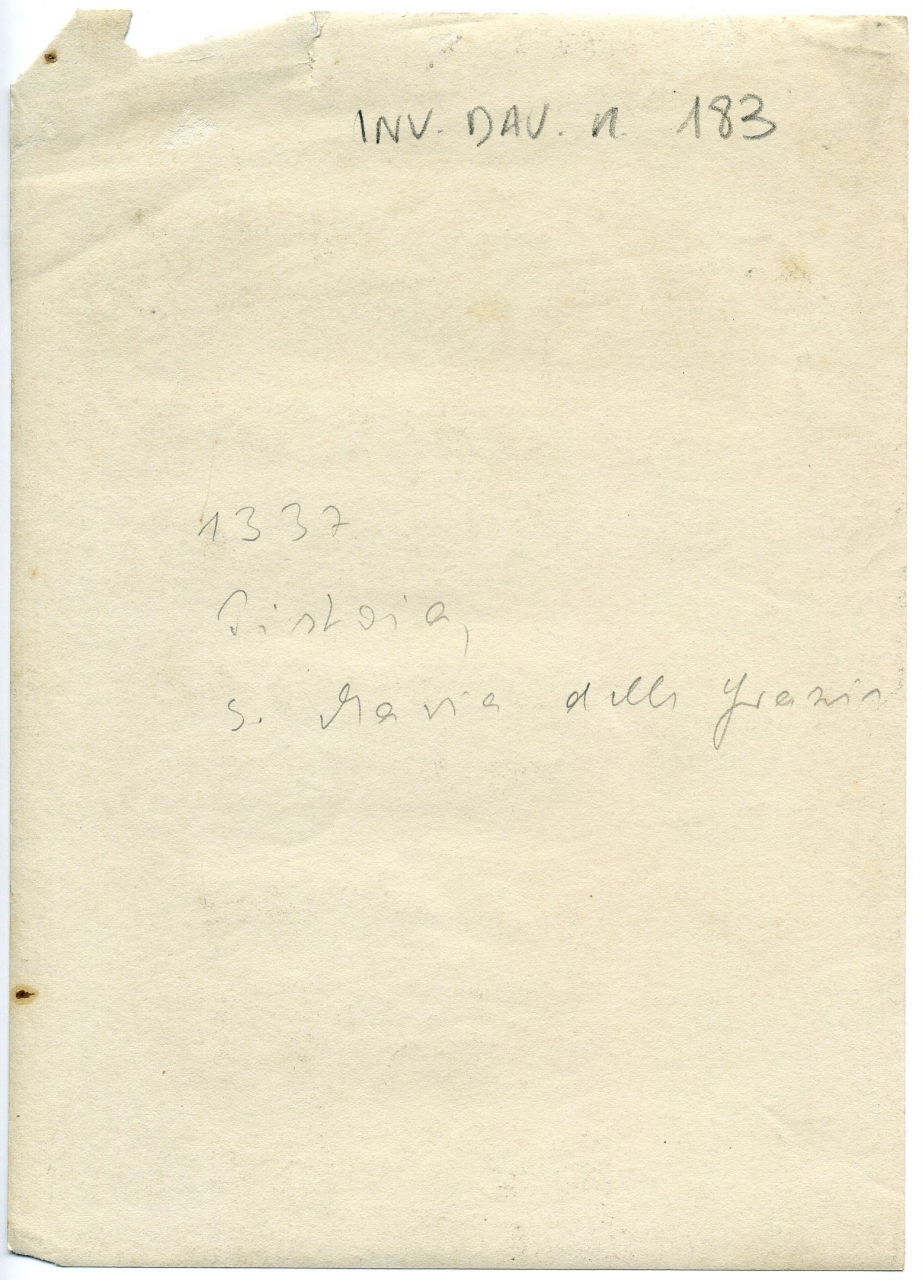 INV. DAV. n. 183
1337
Pistoia,
S. Maria delle Grazie